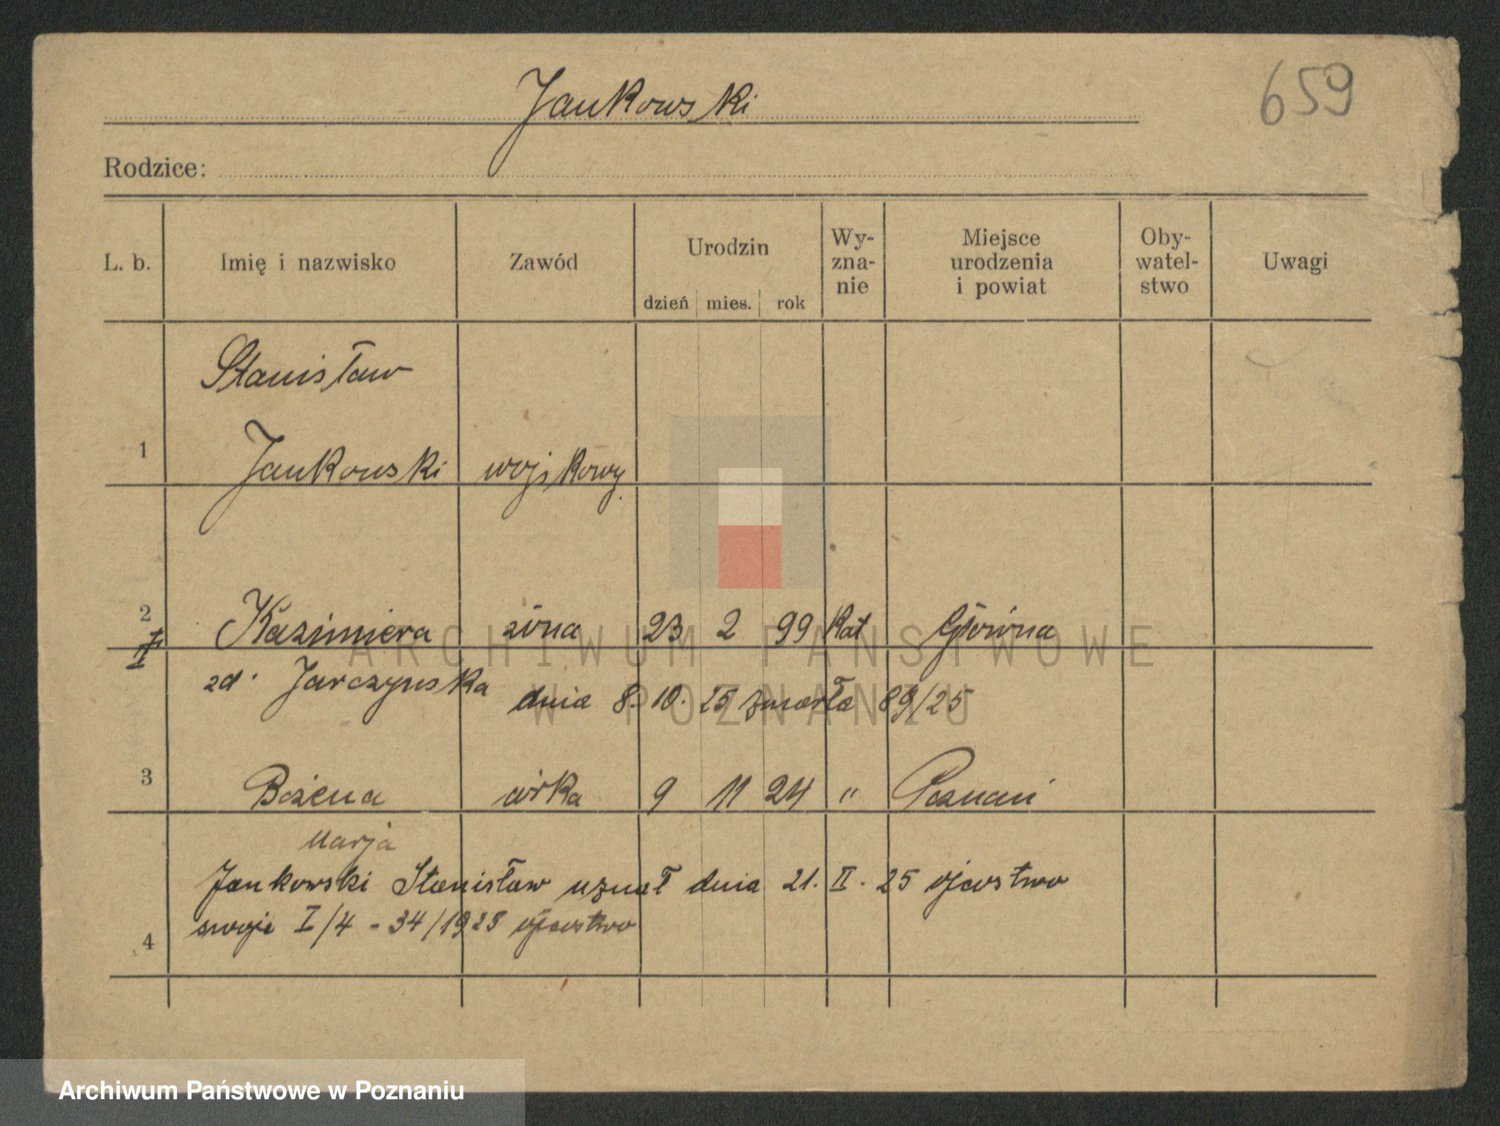 Jankowski
659
Rodzice:
L. b. Imię i nazwisko Zawód Urodzin Wy-zna-nie Miejsce urodzenia i powiat Oby-watel-stwo Uwagi
dzień mies. rok
Stanisław
1 Jankowski wojskowy
2 Kazimiera żóna 23 2 99 Kat Główna
zd. Jarczyńska
dnia 8. 10. 25 zmarła 89/25
3 Bożena córka 9 11 24 " Poznań
Marja
Jankowski Stanisław uznał dnia 21. II. 25 ojcostwo
swoje I/4 - 34/1928 ojcostwo
4
ARCHIWUM PAŃSTWOWE
W POZNANIU
Archiwum Państwowe w Poznaniu